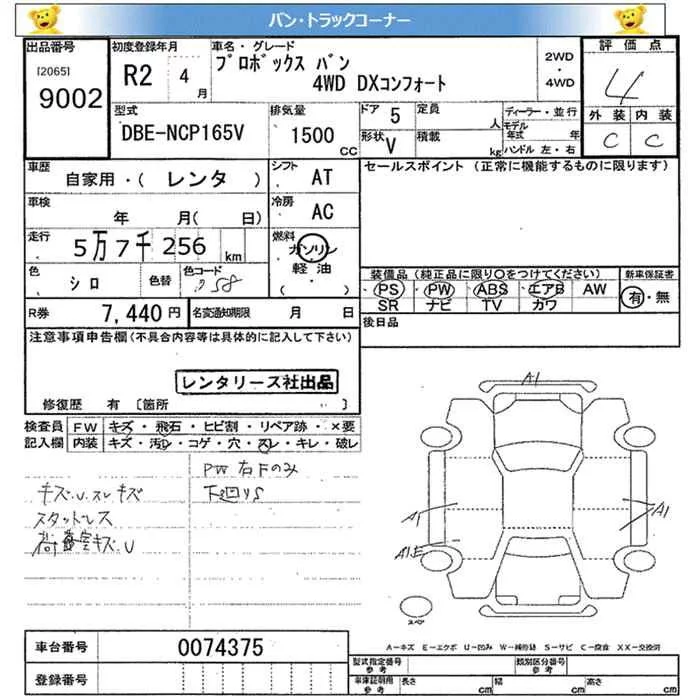 バン・トラックコーナー
出品番号 初度登録年月 車名・グレード 評価点
[2065] 9002
R2 4月
プロボックス バン
4WD DXコンフォート
2WD・4WD
4
外装 内装
C C
型式 排気量 ドア 定員 ディーラー・並行
DBE-NCP165V 1500 CC 5 人 モデル年式 年
形状 V 積載 kg ハンドル 左・右
車歴 シフト セールスポイント (正常に機能するものに限ります)
自家用・( レンタ ) AT
車検 冷房
年 月( 日) AC
走行 燃料
5万7千256 km ガソリン
軽油
( ・ )
色 色替 色コード
シロ 058
装備品 (純正品に限り○をつけてください) 新車保証書
PS PW ABS エアB AW 有・無
SR ナビ TV カワ
R券 7,440円 名変通知期限 月 日
後日品
注意事項申告欄(不具合内容等は具体的に記入して下さい)
レンタリース社出品
修復歴 有 〔箇所 〕
検査員記入欄
FW キズ・飛石・ヒビ割・リペア跡・×要
内装 キズ・汚レ・コゲ・穴・スレ・キレ・破レ
PW右Fのみ
キズ.U.スレキズ 下廻りS
スタットレス
荷室キズ.U
A1
A1 A1
A1.E
スペア
A-キズ E-エクボ U-凹み W-補修跡 S-サビ C-腐食 XX-交換済
車台番号 0074375
登録番号
型式指定番号 参考 類別区分番号 参考
車庫証明用 参考 長さ cm 幅 cm 高さ cm